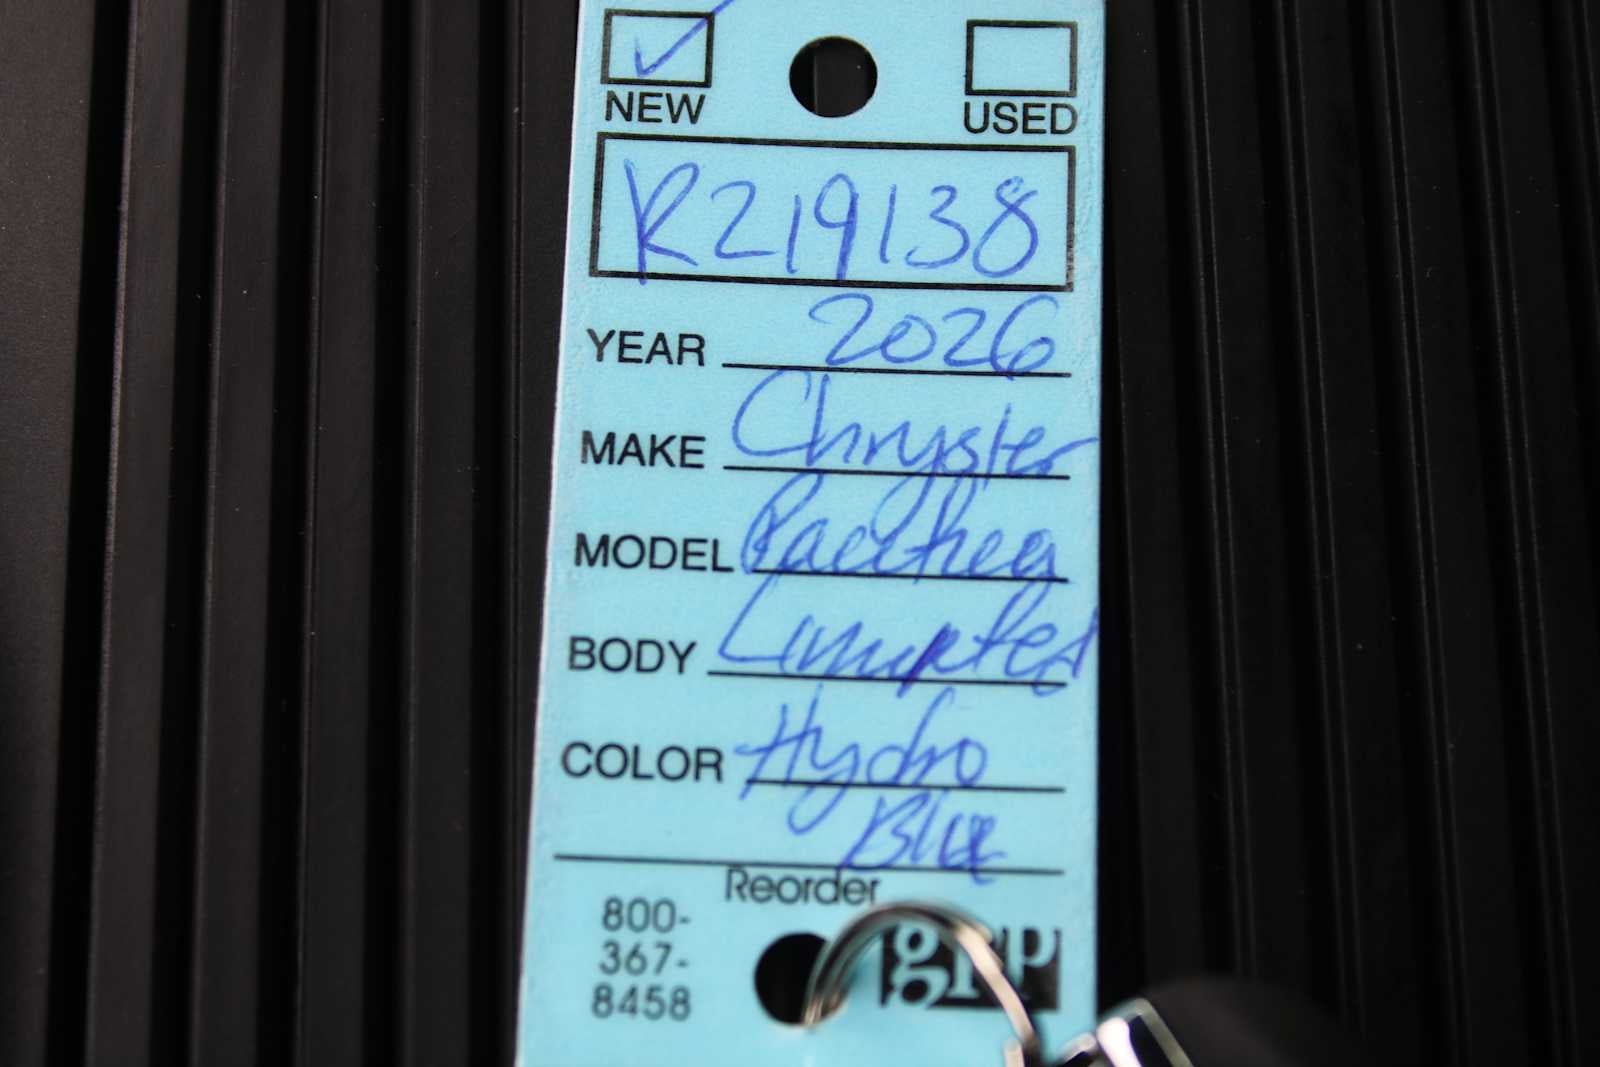 NEW USED
R219138
YEAR 2026
MAKE Chrysler
MODEL Pacifica
BODY Limited
COLOR Hydro
Blue
Reorder
800-
367-
8458
grp